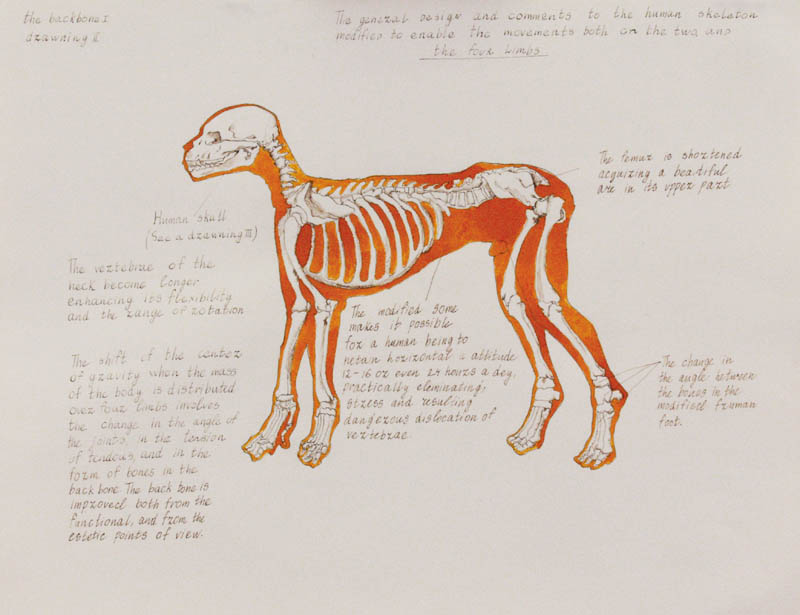 the backbone I
dzawning II
The general design and comments to the human skeleton
modified to enable the movements both on the two, and
the four limbs.
The femur is shortened
acquizing a beautiful
arc in its uppez pazt
Human skull
(See a dzawning III)
The veztebrae of the
neck become longer
enhancing its flexibility
and the zange of rotation
The modified some
makes it possible
foz a human being to
retain horizontal attitude
12-16 oz even 24 hours a day,
practically eleminating,
stzess and resulting
dangezous dislocation of
veztebzae.
The shift of the centez
of gzavity when the mass
of the body is distributed
ovez fouz limbs involves
the change in the angle of
the joints, in the tension
of tendous, and in the
fozm of bones in the
back bone. The back bone is
improved both from the
functional, and from the
estetic points of view.
The change in
the angle between
the bones in the
modified fruman
foot.